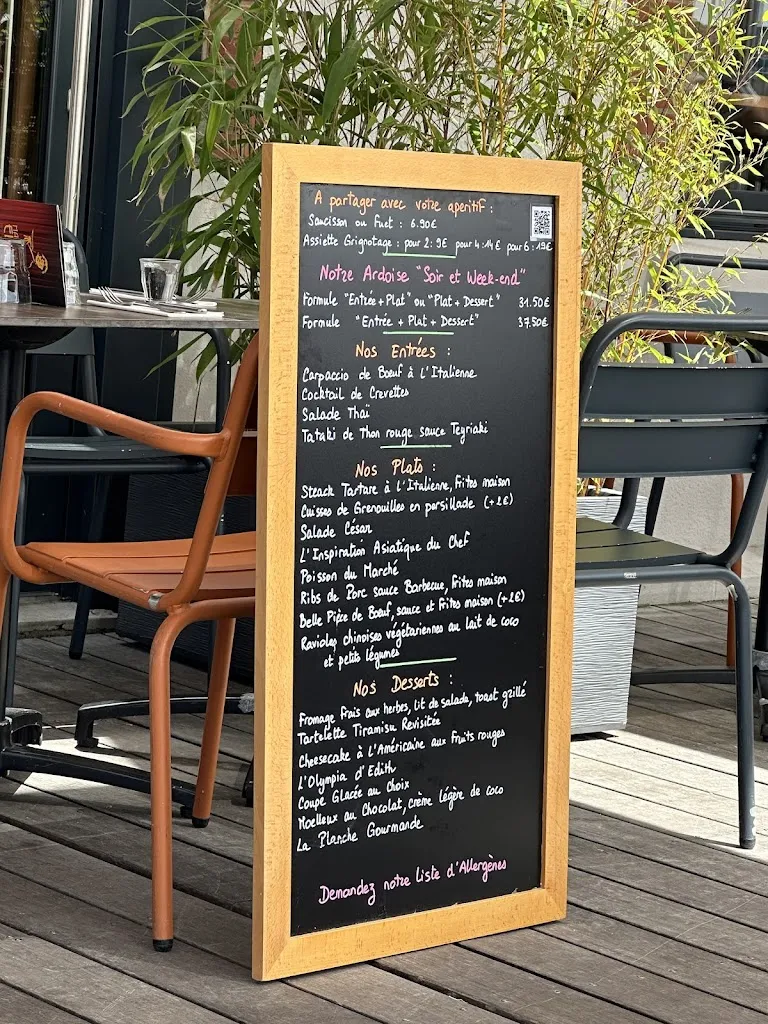 A partager avec votre apéritif :
Saucisson ou Fuet : 6.90€
Assiette Grignotage : pour 2 : 9€ pour 4 : 14€ pour 6 : 19€
Notre Ardoise "Soir et Week-end"
Formule "Entrée + Plat" ou "Plat + Dessert" 31.50€
Formule "Entrée + Plat + Dessert" 37.50€
Nos Entrées :
Carpaccio de Bœuf à L'Italienne
Cocktail de Crevettes
Salade Thaï
Tataki de Thon rouge sauce Teyriaki
Nos Plats :
Steack Tartare à l'Italienne, Frites maison
Cuisses de Grenouilles en persillade (+2€)
Salade César
L'Inspiration Asiatique du Chef
Poisson du Marché
Ribs de Porc sauce Barbecue, Frites maison
Belle Pièce de Bœuf, sauce et Frites maison (+2€)
Ravioles chinoises végétariennes au lait de coco
et petits légumes
Nos Desserts :
Fromage Frais aux herbes, lit de salade, toast grillé
Tartelette Tiramisu Revisitée
Cheesecake à L'Américaine aux Fruits rouges
L'Olympia d'Edith
Coupe Glacée au Choix
Moelleux au Chocolat, crème légère de coco
La Planche Gourmande
Demandez notre liste d'Allergènes